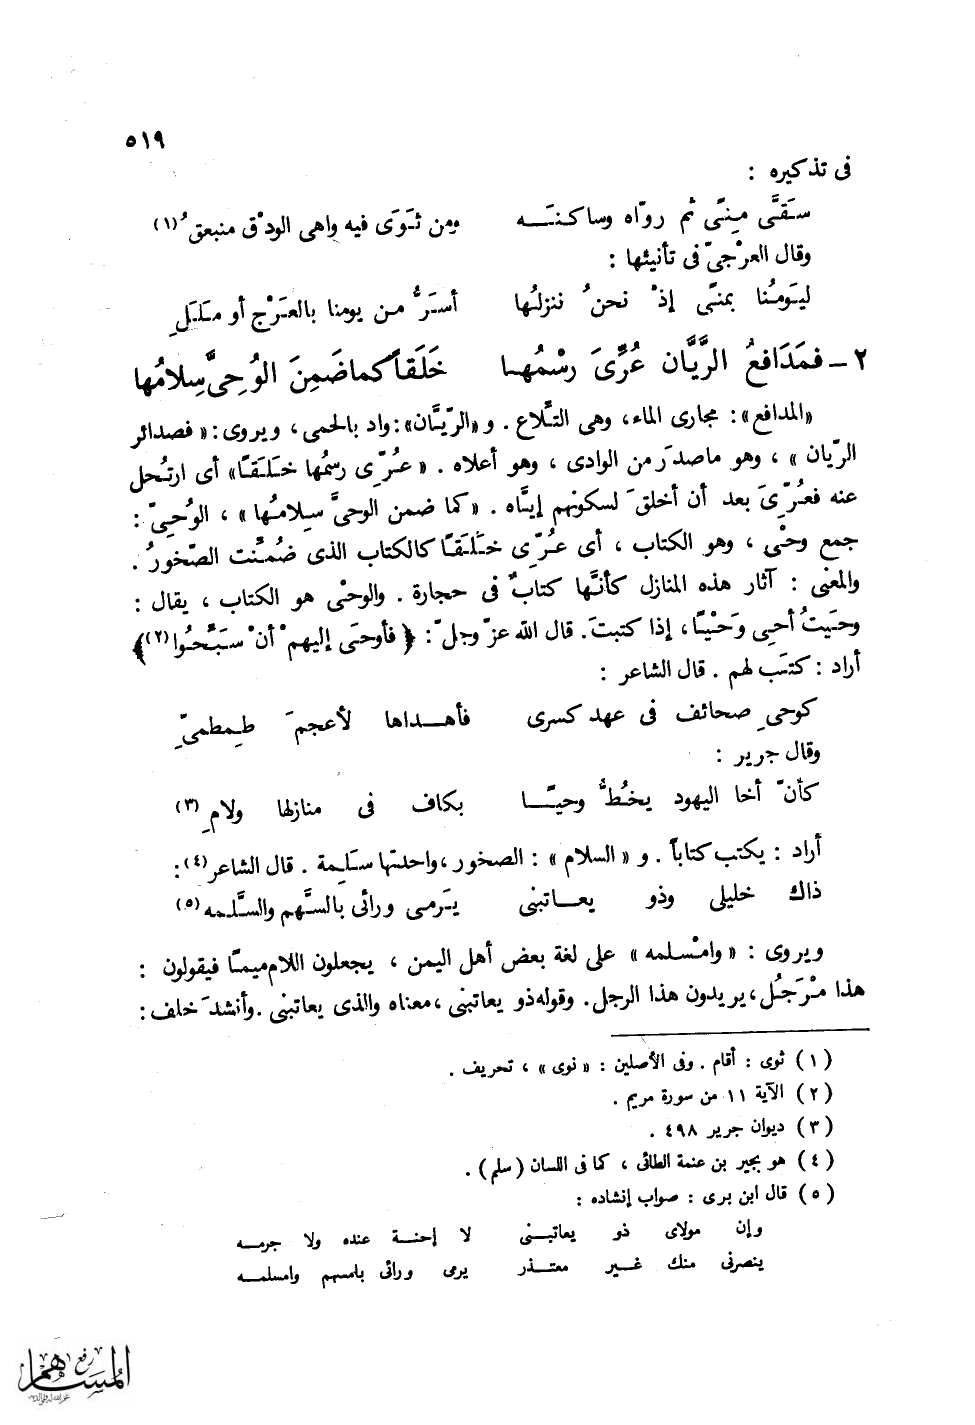 ٥١٩
فى تذكيره :
سَقَّى مِنًى ثم روّاه وساكنَـه     ومن ثَوَى فيه واهى الودْق منبعقُ (١)
وقال العرْجىّ فى تأنيثها :
ليَومُنا بمنًى إذْ نحنُ ننزلُها     أسَرُّ من يومنا بالعَرْج أو مَلَلِ
٢ - فمَدَافعُ الرَّيَّان عُرِّىَ رسْمُها     خَلَقاً كما ضَمِنَ الوُحِىَّ سِلامُها
«المدافع»: مجارى الماء، وهى التِّلاع . و«الريّان»: واد بالحمى ، ويروى: «فصدائر
الريّان» ، وهو ما صدَر من الوادى ، وهو أعلاه . «عُرِّى رسمُها خَلَقًا» أى ارتُحل
عنه فعُرِّىَ بعد أن أخلقَ لسكونهم إيّاه . «كما ضمن الوحىَّ سِلامُها» ، الوُحِىّ :
جمع وحْى ، وهو الكتاب ، أى عُرِّى خَلَقًا كالكتاب الذى ضُمِّنت الصّخورُ .
والمعنى : آثار هذه المنازل كأنَّها كتابٌ فى حجارة . والوحْى هو الكتاب ، يقال :
وحَيتُ أحِى وَحْيًا، إذا كتبتَ. قال الله عزّ وجلّ: ﴿ فأوحَى إليهمْ أنْ سَبِّحُوا (٢)﴾
أراد : كتَب لهم . قال الشاعر :
كوحىِ صحائف فى عهد كسرى     فأهـداها لأعجمَ طِمطمىِّ
وقال جرير :
كأنّ أخا اليهود يخُطُّ وحيًا     بكاف فى منازلها ولامِ (٣)
أراد : يكتب كتاباً . و«السلام» : الصخور ، واحدتها سَلِمة . قال الشاعر (٤):
ذاك خليلى وذو يعاتبنى     يَرمى ورائى بالسَّهم والسَّلمه (٥)
ويروى : «وامْسلمه» على لغة بعض أهل اليمن ، يجعلون اللام ميمًا فيقولون :
هذا مْرَجُل، يريدون هذا الرجل. وقوله ذو يعاتبنى ، معناه والذى يعاتبنى . وأنشدَ خلف :
(١) ثوى : أقام . وفى الأصلين : «نوى» ، تحريف .
(٢) الآية ١١ من سورة مريم .
(٣) ديوان جرير ٤٩٨ .
(٤) هو بجير بن عنمة الطائى ، كما فى اللسان (سلم) .
(٥) قال ابن برى : صواب إنشاده :
وإن مولاى ذو يعاتبنى     لا إحنة عنده ولا جرمه
ينصرنى منك غير معتذر     يرمى ورائى بامسهم وامسلمه